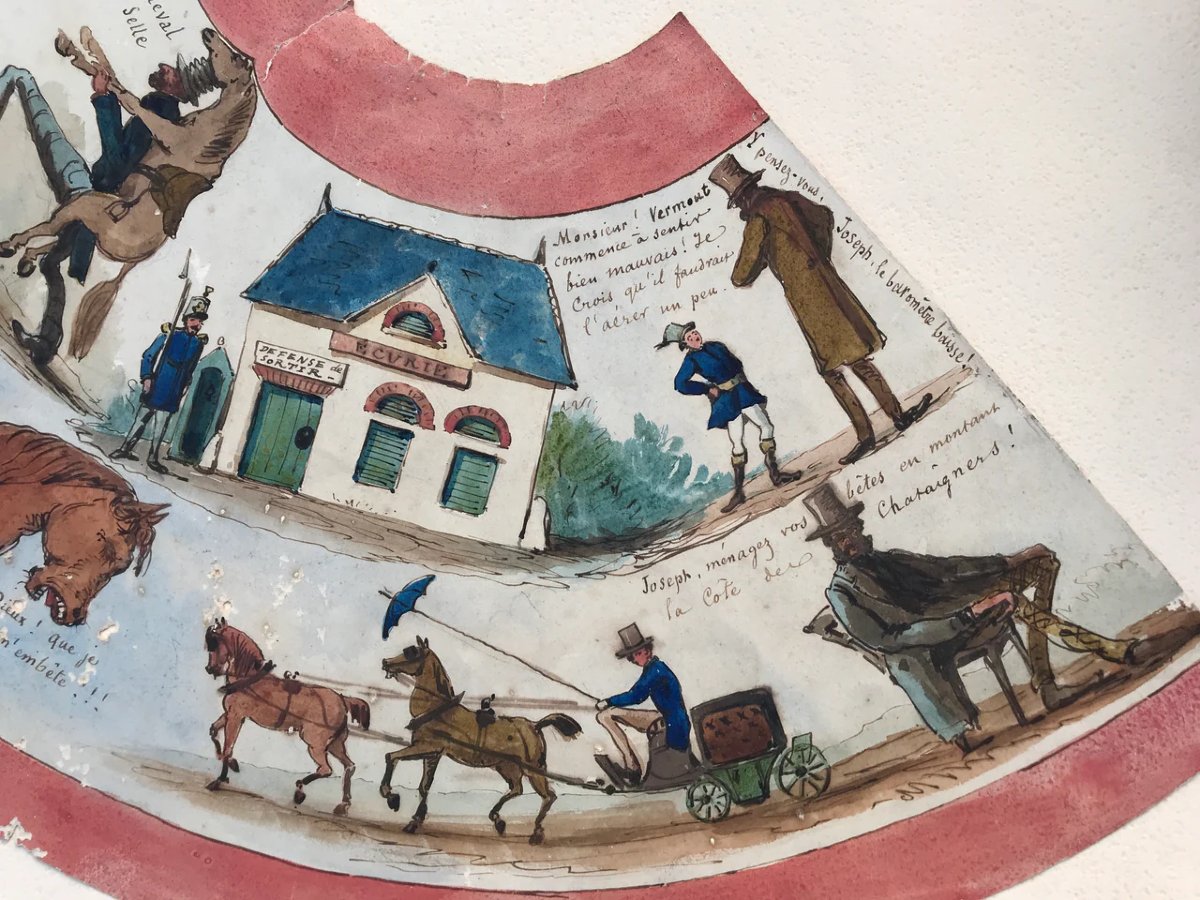 cheval
Selle
DEFENSE de
SORTIR -
ÉCURIE
Monsieur! Vermout
commence à sentir
bien mauvais! Je
Crois qu'il faudrait
l'aérer un peu.
Y pensez-vous, Joseph, le baromètre baisse!
Joseph, ménagez vos bêtes en montant
la Côte de Chataigners!
Dieux! que je
m'embête..!!